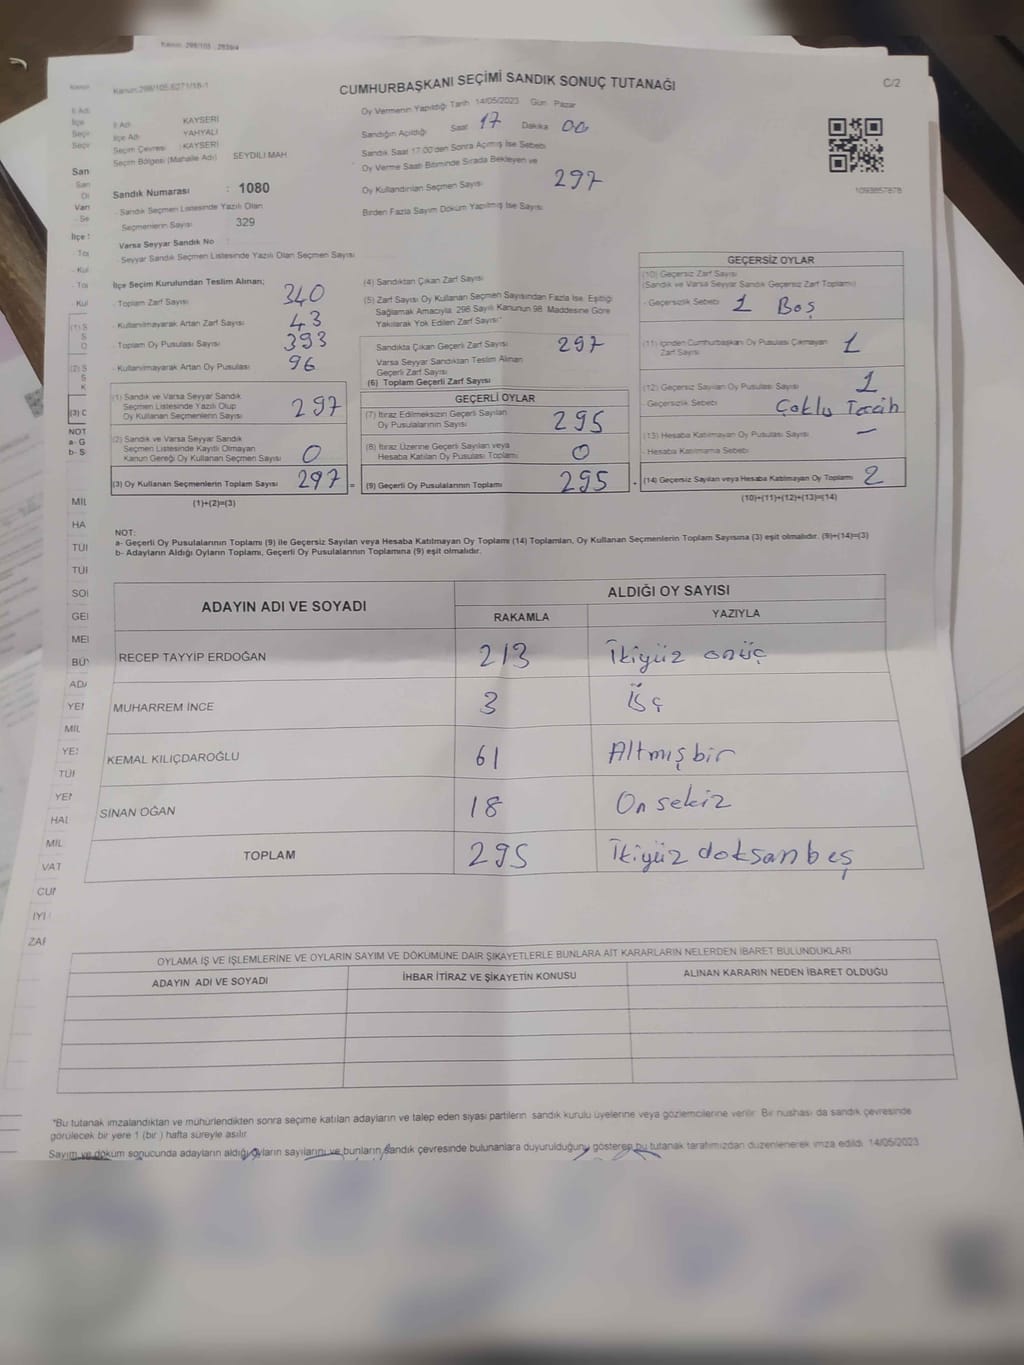 Kanun: 298/105 , 2839/4
Kanun:298/105,6271/18-1
CUMHURBAŞKANI SEÇİMİ SANDIK SONUÇ TUTANAĞI
C/2
İl Adı : KAYSERİ
İlçe Adı : YAHYALI
Seçim Çevresi : KAYSERİ
Seçim Bölgesi (Mahalle Adı) : SEYDİLİ MAH
Sandık Numarası : 1080
- Sandık Seçmen Listesinde Yazılı Olan
Seçmenlerin Sayısı 329
Varsa Seyyar Sandık No :
- Seyyar Sandık Seçmen Listesinde Yazılı Olan Seçmen Sayısı
Oy Vermenin Yapıldığı Tarih 14/05/2023 Gün Pazar
Sandığın Açıldığı Saat 17 Dakika 00
Sandık Saat 17:00'den Sonra Açılmış İse Sebebi
Oy Verme Saati Bitiminde Sırada Bekleyen ve
Oy Kullandırılan Seçmen Sayısı 297
Birden Fazla Sayım Döküm Yapılmış İse Sayısı
1093857878
İlçe Seçim Kurulundan Teslim Alınan;
- Toplam Zarf Sayısı 340
- Kullanılmayarak Artan Zarf Sayısı 43
- Toplam Oy Pusulası Sayısı 393
- Kullanılmayarak Artan Oy Pusulası 96
(1) Sandık ve Varsa Seyyar Sandık
Seçmen Listesinde Yazılı Olup
Oy Kullanan Seçmenlerin Sayısı 297
(2) Sandık ve Varsa Seyyar Sandık
Seçmen Listesinde Kayıtlı Olmayan
Kanun Gereği Oy Kullanan Seçmen Sayısı 0
(3) Oy Kullanan Seçmenlerin Toplam Sayısı 297 =
(1)+(2)=(3)
(4) Sandıktan Çıkan Zarf Sayısı
(5) Zarf Sayısı Oy Kullanan Seçmen Sayısından Fazla İse, Eşitliği
Sağlamak Amacıyla, 298 Sayılı Kanunun 98. Maddesine Göre
Yakılarak Yok Edilen Zarf Sayısı
Sandıkta Çıkan Geçerli Zarf Sayısı 297
Varsa Seyyar Sandıktan Teslim Alınan
Geçerli Zarf Sayısı
(6) Toplam Geçerli Zarf Sayısı
GEÇERLİ OYLAR
(7) İtiraz Edilmeksizin Geçerli Sayılan
Oy Pusulasının Sayısı 295
(8) İtiraz Üzerine Geçerli Sayılan veya
Hesaba Katılan Oy Pusulası Toplamı 0
(9) Geçerli Oy Pusulalarının Toplamı 295 +
GEÇERSİZ OYLAR
(10) Geçersiz Zarf Sayısı
(Sandık ve Varsa Seyyar Sandık Geçersiz Zarf Toplamı)
- Geçersizlik Sebebi 1 Boş
(11) İçinden Cumhurbaşkanı Oy Pusulası Çıkmayan
Zarf Sayısı 1
(12) Geçersiz Sayılan Oy Pusulası Sayısı 1
- Geçersizlik Sebebi Çoklu Tercih
(13) Hesaba Katılmayan Oy Pusulası Sayısı —
- Hesaba Katılmama Sebebi
(14) Geçersiz Sayılan veya Hesaba Katılmayan Oy Toplamı 2
(10)+(11)+(12)+(13)=(14)
NOT:
a- Geçerli Oy Pusulalarının Toplamı (9) ile Geçersiz Sayılan veya Hesaba Katılmayan Oy Toplamı (14) Toplamları, Oy Kullanan Seçmenlerin Toplam Sayısına (3) eşit olmalıdır. (9)+(14)=(3)
b- Adayların Aldığı Oyların Toplamı, Geçerli Oy Pusulalarının Toplamına (9) eşit olmalıdır.
ADAYIN ADI VE SOYADI
ALDIĞI OY SAYISI
RAKAMLA YAZIYLA
RECEP TAYYİP ERDOĞAN 213 İkiyüz onüç
MUHARREM İNCE 3 üç
KEMAL KILIÇDAROĞLU 61 Altmışbir
SİNAN OĞAN 18 On sekiz
TOPLAM 295 İkiyüz doksanbeş
OYLAMA İŞ VE İŞLEMLERİNE VE OYLARIN SAYIM VE DÖKÜMÜNE DAİR ŞİKAYETLERLE BUNLARA AİT KARARLARIN NELERDEN İBARET BULUNDUKLARI
ADAYIN ADI VE SOYADI İHBAR İTİRAZ VE ŞİKAYETİN KONUSU ALINAN KARARIN NEDEN İBARET OLDUĞU
*Bu tutanak imzalandıktan ve mühürlendikten sonra seçime katılan adayların ve talep eden siyasi partilerin sandık kurulu üyelerine veya gözlemcilerine verilir. Bir nushası da sandık çevresinde
görülecek bir yere 1 (bir ) hafta süreyle asılır.
Sayım ve döküm sonucunda adayların aldığı oyların sayılarını ve bunların sandık çevresinde bulunanlara duyurulduğunu gösteren bu tutanak tarafımızdan düzenlenerek imza edildi. 14/05/2023